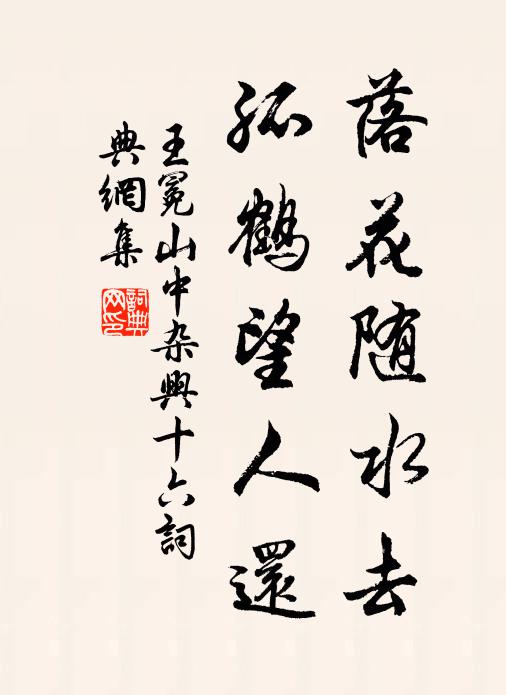 落花随水去
孤鶴望人還
王冕山中杂興十六詞
典網集
詞典網印